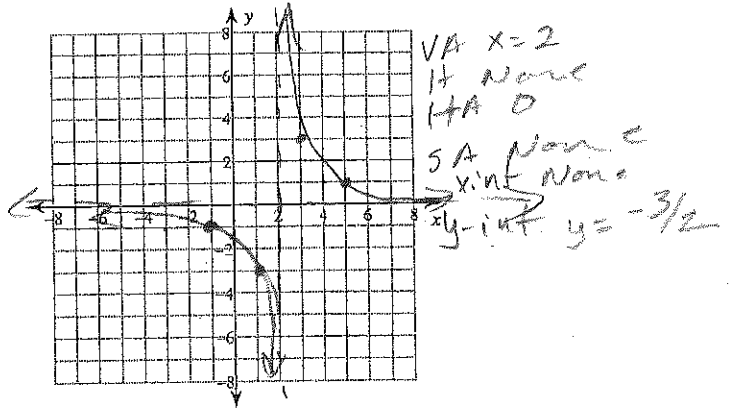 y
8
6
4
2
-8 -6 -4 -2 2 4 6 8
x
-2
-4
-6
-8
VA x=2
H None
HA 0
SA None
xint None
y-int y= -3/2